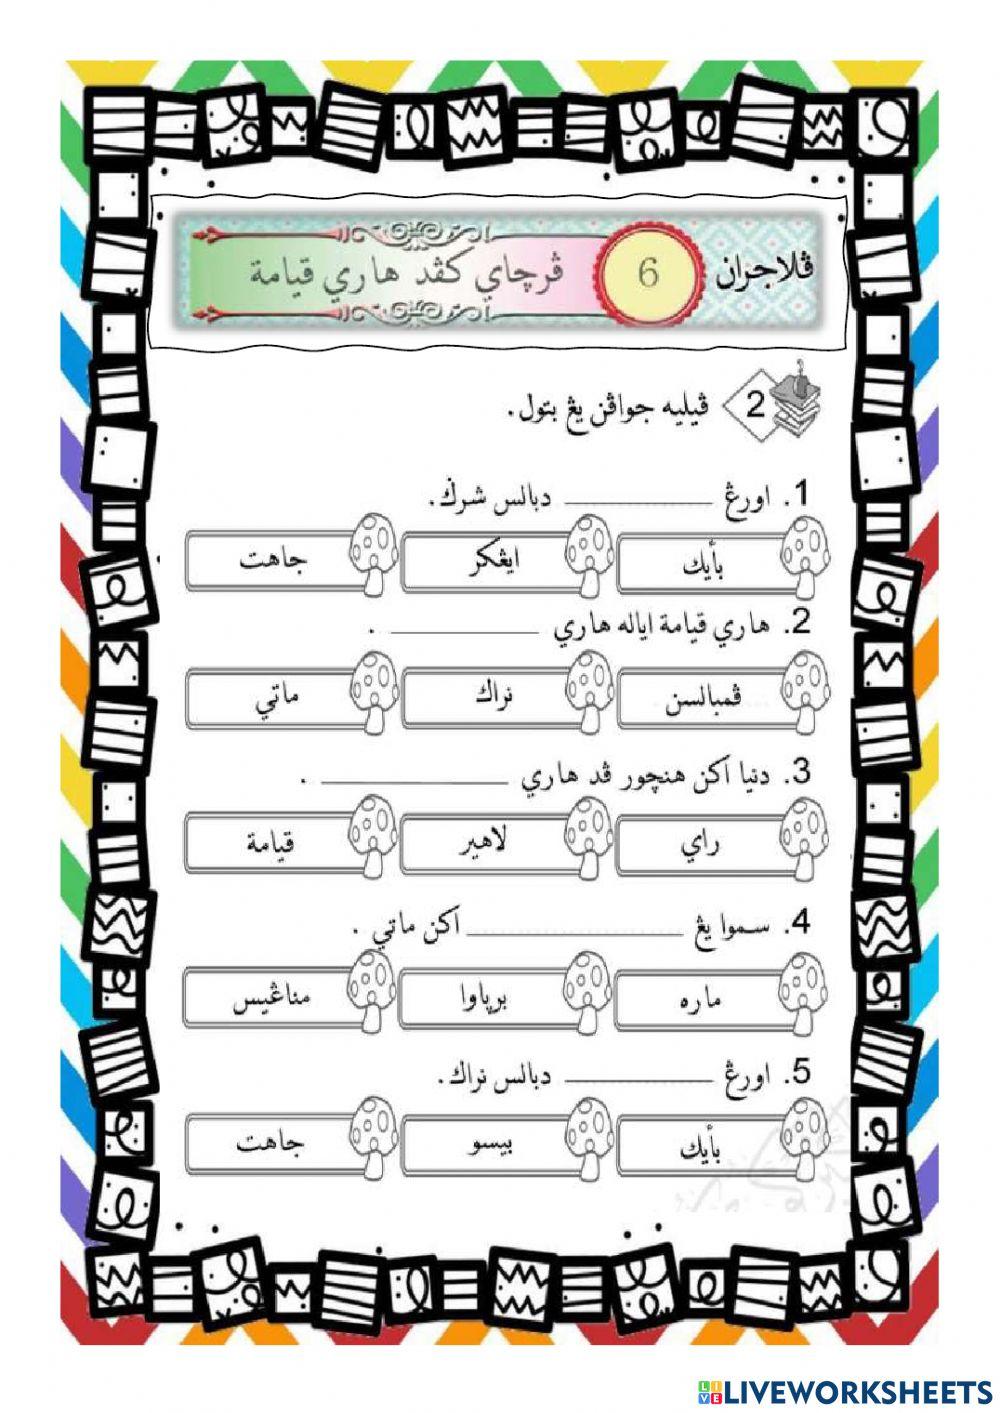 ڤلاجران 6 ڤرچاي کڤد هاري قيامة
2 ڤيليه جواڤن يڠ بتول.
1. اورڠ ________ دبالس شرݢ.
بأيك ايڠکر جاهت
2. هاري قيامة اياله هاري ________ .
ڤمبالسن نراك ماتي
3. دنيا اکن هنچور ڤد هاري ________ .
راي لاهير قيامة
4. سموا يڠ ________ اکن ماتي .
ماره برڽاوا مناڠيس
5. اورڠ ________ دبالس نراك.
بأيك بيسو جاهت
LIVEWORKSHEETS